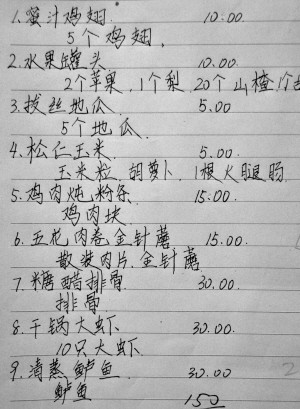 1.蜜汁鸡翅 10.00
5个鸡翅.
2.水果罐头 10.00
2个苹果.1个梨.20个山楂
3.拔丝地瓜 5.00
5个地瓜
4.松仁玉米 5.00
玉米粒.胡萝卜.1根火腿肠
5.鸡肉炖粉条 15.00
鸡肉块
6.五花肉卷金针蘑 15.00
散装肉片.金针蘑
7.糖醋排骨 30.00
排骨
8.干锅大虾 30.00
10只大虾
9.清蒸鲈鱼 30.00
鲈鱼 150